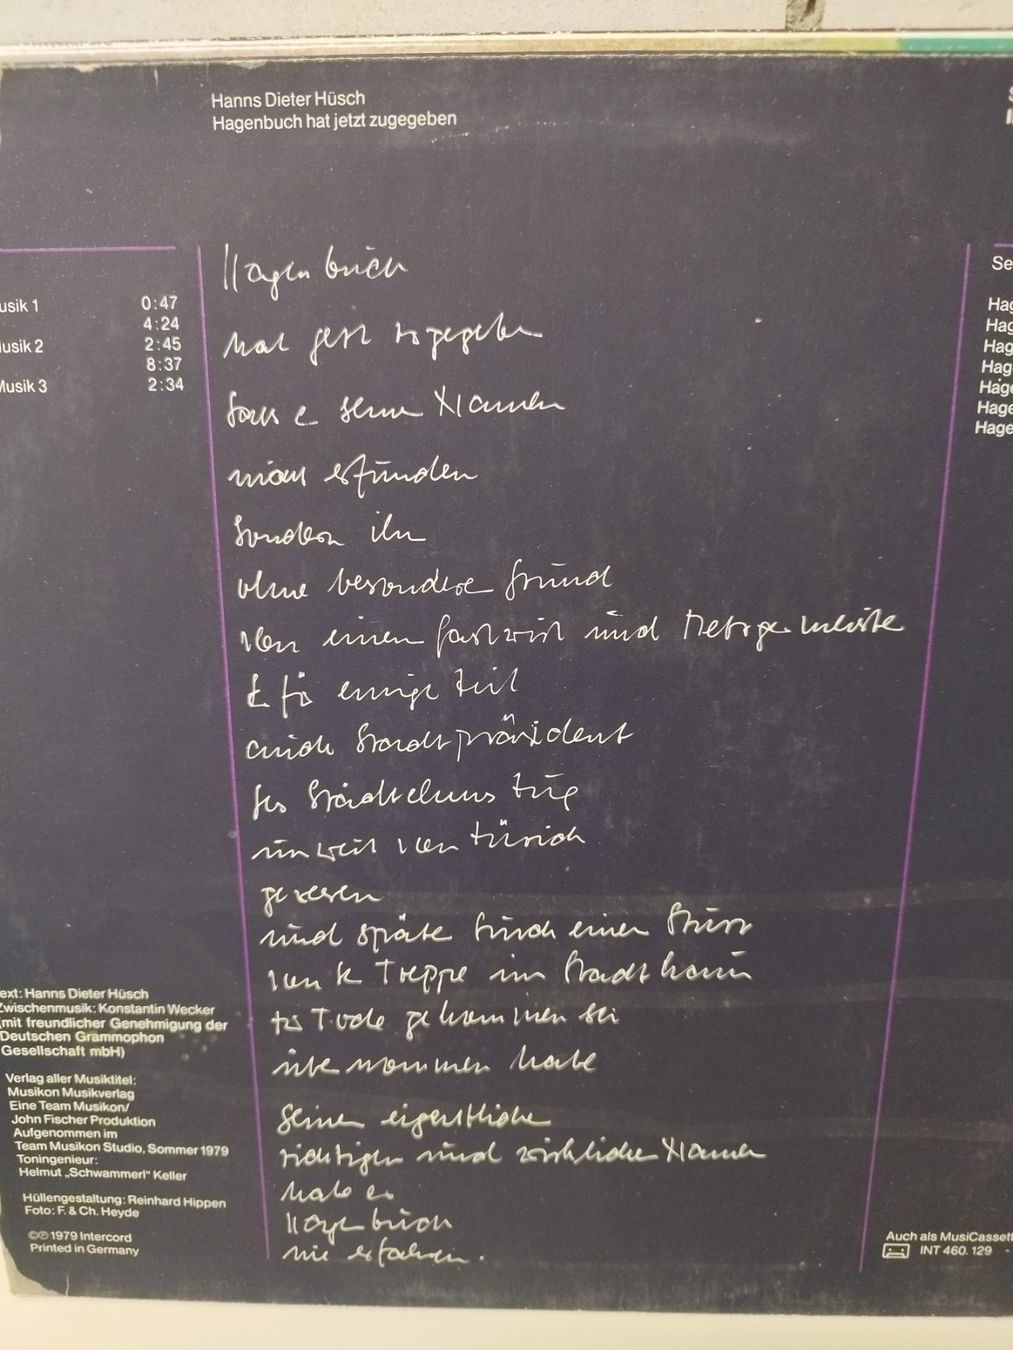 Hanns Dieter Hüsch
Hagenbuch hat jetzt zugegeben
usik 1 0:47
4:24
usik 2 2:45
8:37
Musik 3 2:34
Hagenbuch
hat jetzt zugegeben
dass er seinen Namen
nicht erfunden
sondern ihn
ohne besonderen Grund
von einem Gastwirt und Metzgermeister
der für einige Zeit
auch Stadtpräsident
des Städtchens Zug
unweit von Zürich
gewesen
und später durch einen Sturz
von der Treppe im Stadthaus
zu Tode gekommen sei
übernommen habe
Seinen eigentlichen
richtigen und wirklichen Namen
habe er
Hagenbuch
nie erfahren.
ext: Hanns Dieter Hüsch
Zwischenmusik: Konstantin Wecker
(mit freundlicher Genehmigung der
Deutschen Grammophon
Gesellschaft mbH)
Verlag aller Musiktitel:
Musikon Musikverlag
Eine Team Musikon/
John Fischer Produktion
Aufgenommen im
Team Musikon Studio, Sommer 1979
Toningenieur:
Helmut „Schwammerl" Keller
Hüllengestaltung: Reinhard Hippen
Foto: F. & Ch. Heyde
©℗ 1979 Intercord
Printed in Germany
Se
Hag
Hag
Hag
Hag
Hage
Hage
Hage
Auch als MusiCassett
INT 460.129 -